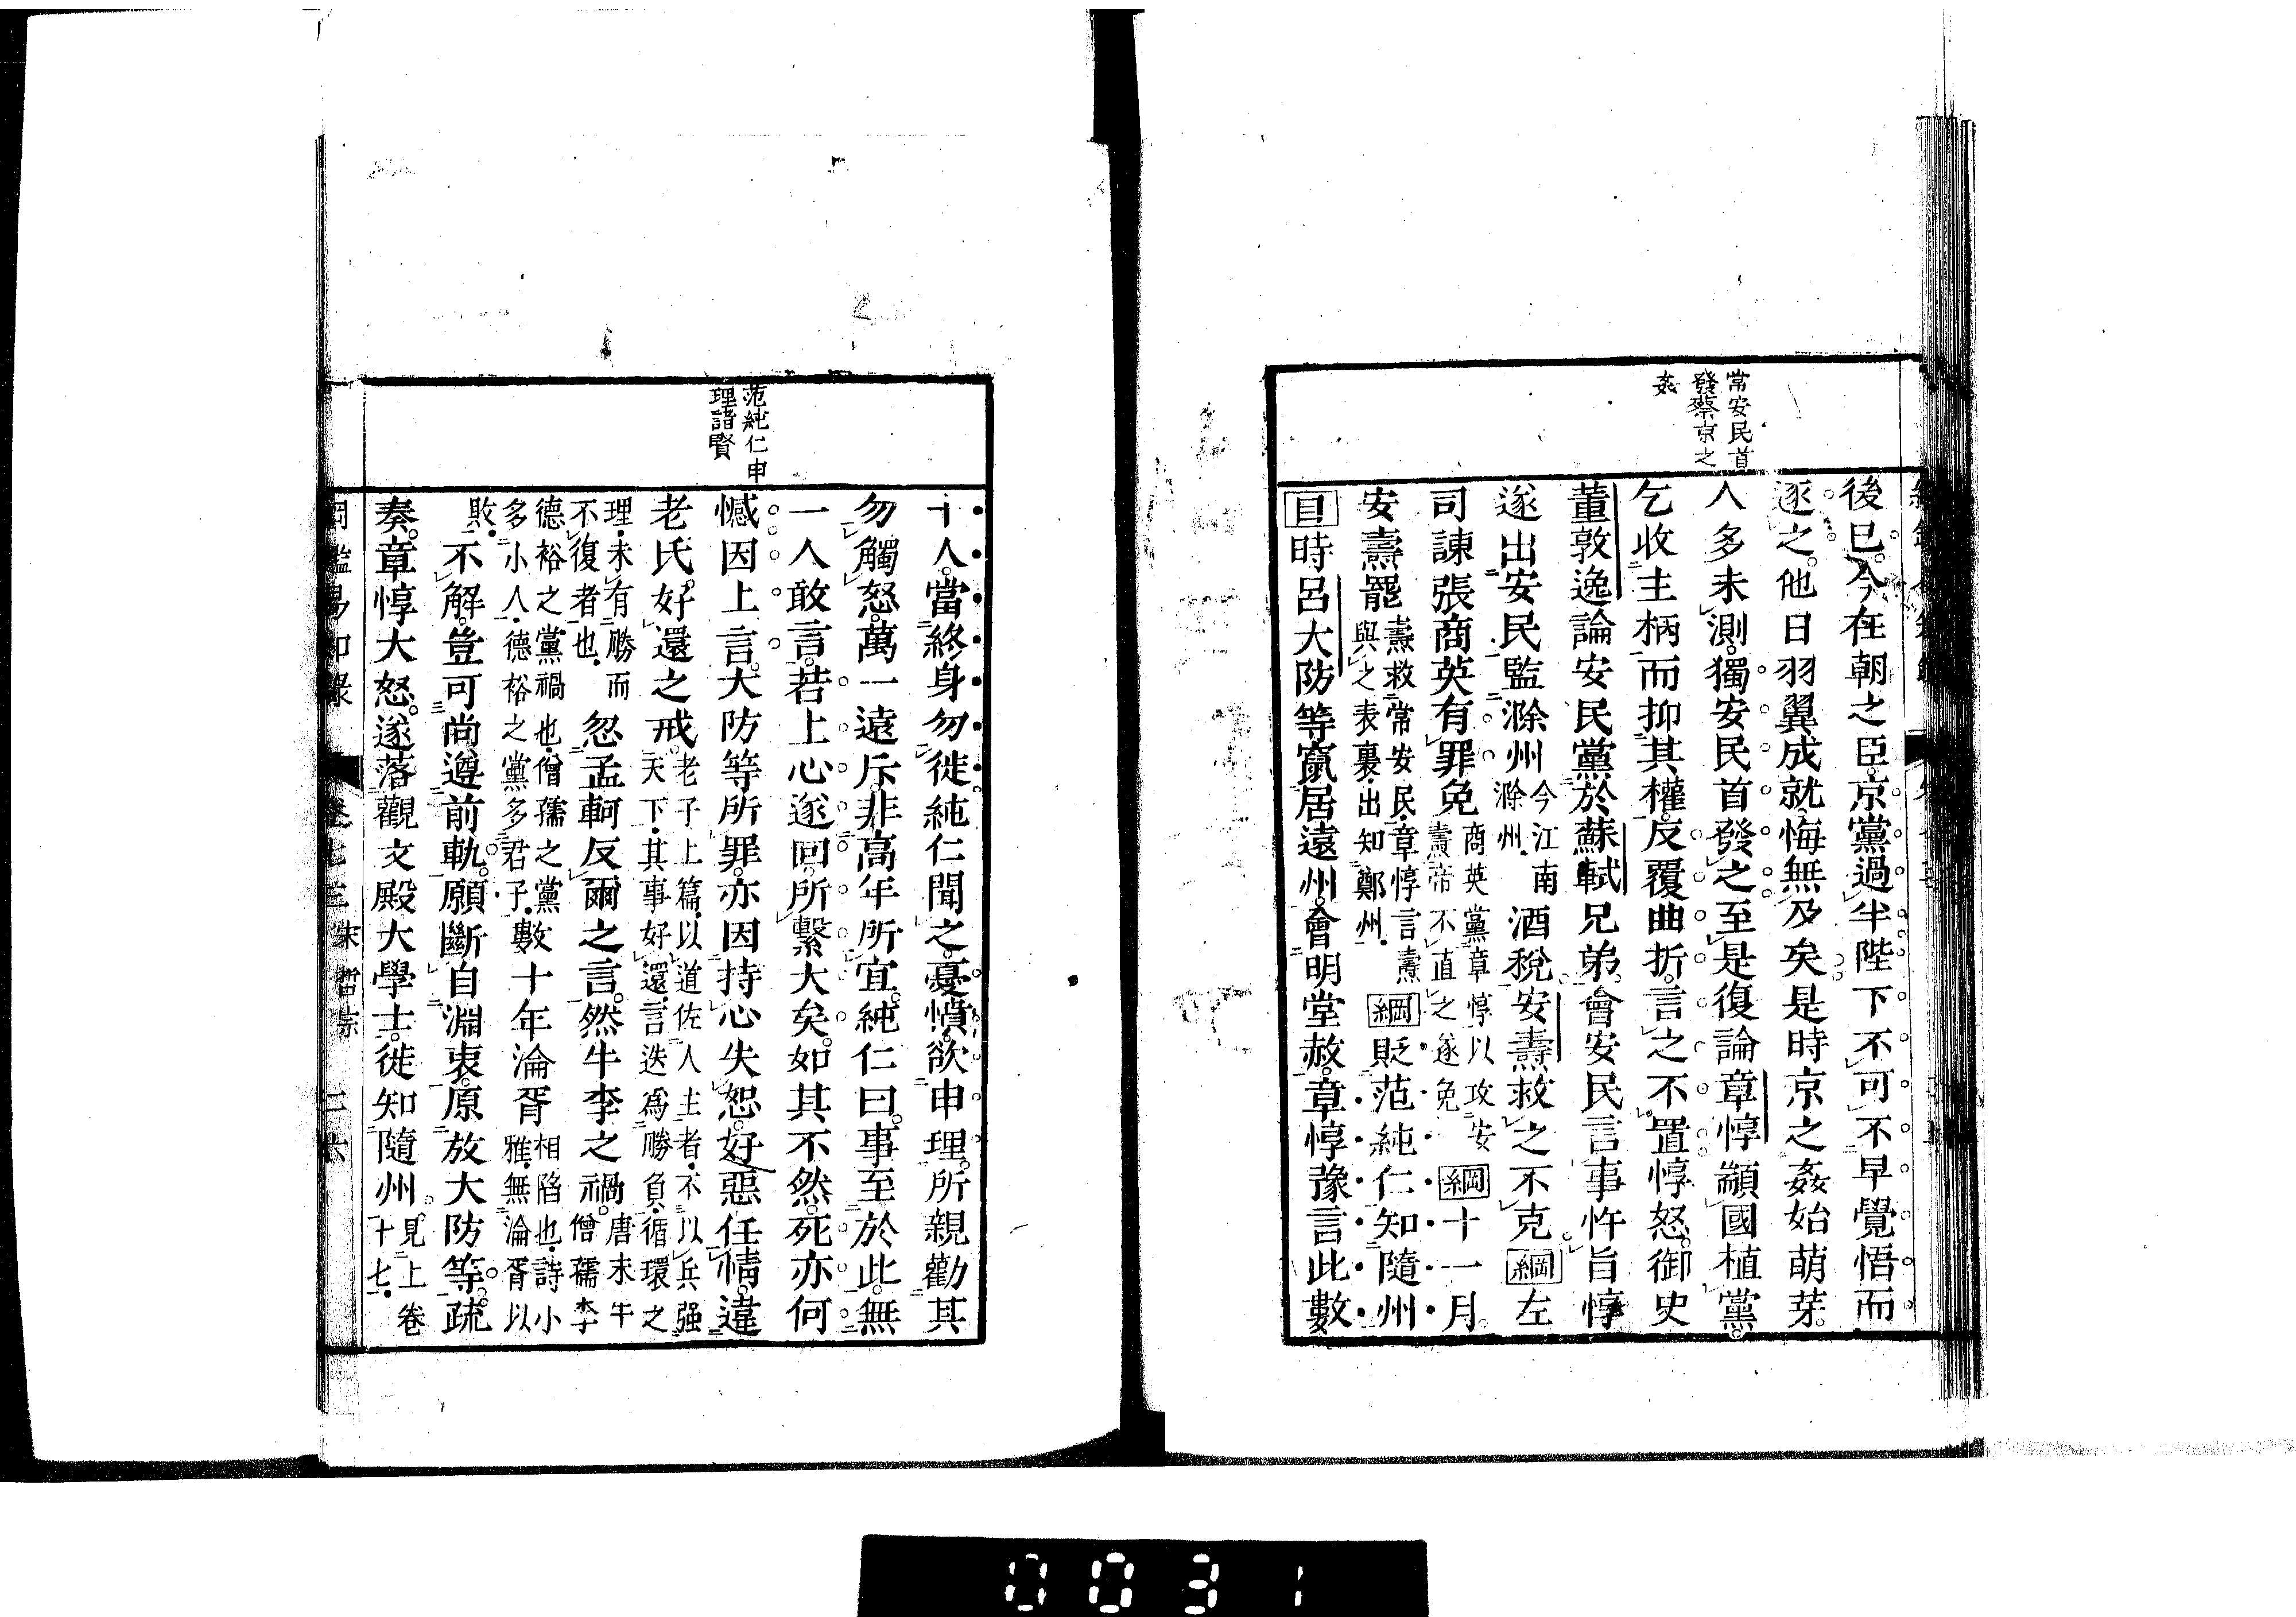 常安民首
發蔡京之
姦
後已今在朝之臣京黨過半陛下不可不早覺悟而
逐之他日羽翼成就悔無及矣是時京之姦始萌芽
人多未測獨安民首發之至是復論章惇顓國植黨
乞收主柄而抑其權反覆曲折言之不置惇怒御史
董敦逸論安民黨於蘇軾兄弟會安民言事忤旨惇
遂出安民監滁州今江南滁州酒稅安燾救之不克綱左
司諫張商英有罪免商英黨章惇以攻安燾帝不直之遂免綱十一月
安燾罷燾救常安民章惇言燾與之表裏出知鄭州綱貶范純仁知隨州
目時呂大防等竄居遠州會明堂赦章惇豫言此數
范純仁申
理諸賢
十人當終身勿徙純仁聞之憂憤欲申理所親勸其
勿觸怒萬一遠斥非高年所宜純仁曰事至於此無
一人敢言若上心遂回所繫大矣如其不然死亦何
憾因上言大防等所罪亦因持心失恕好惡任情違
老氏好還之戒老子上篇以道佐人主者不以兵强天下其事好還言迭爲勝負循環之
理未有勝而不復者也忽孟軻反爾之言然牛李之禍唐末牛僧孺李
德裕之黨禍也僧孺之黨多小人德裕之黨多君子數十年淪胥相陷也詩小雅無淪胥以
敗不解豈可尚遵前軌願斷自淵衷原放大防等疏
奏章惇大怒遂落觀文殿大學士徙知隨州見上卷十七
綱鑑易知錄 卷七三 宋哲宗 二六
0031